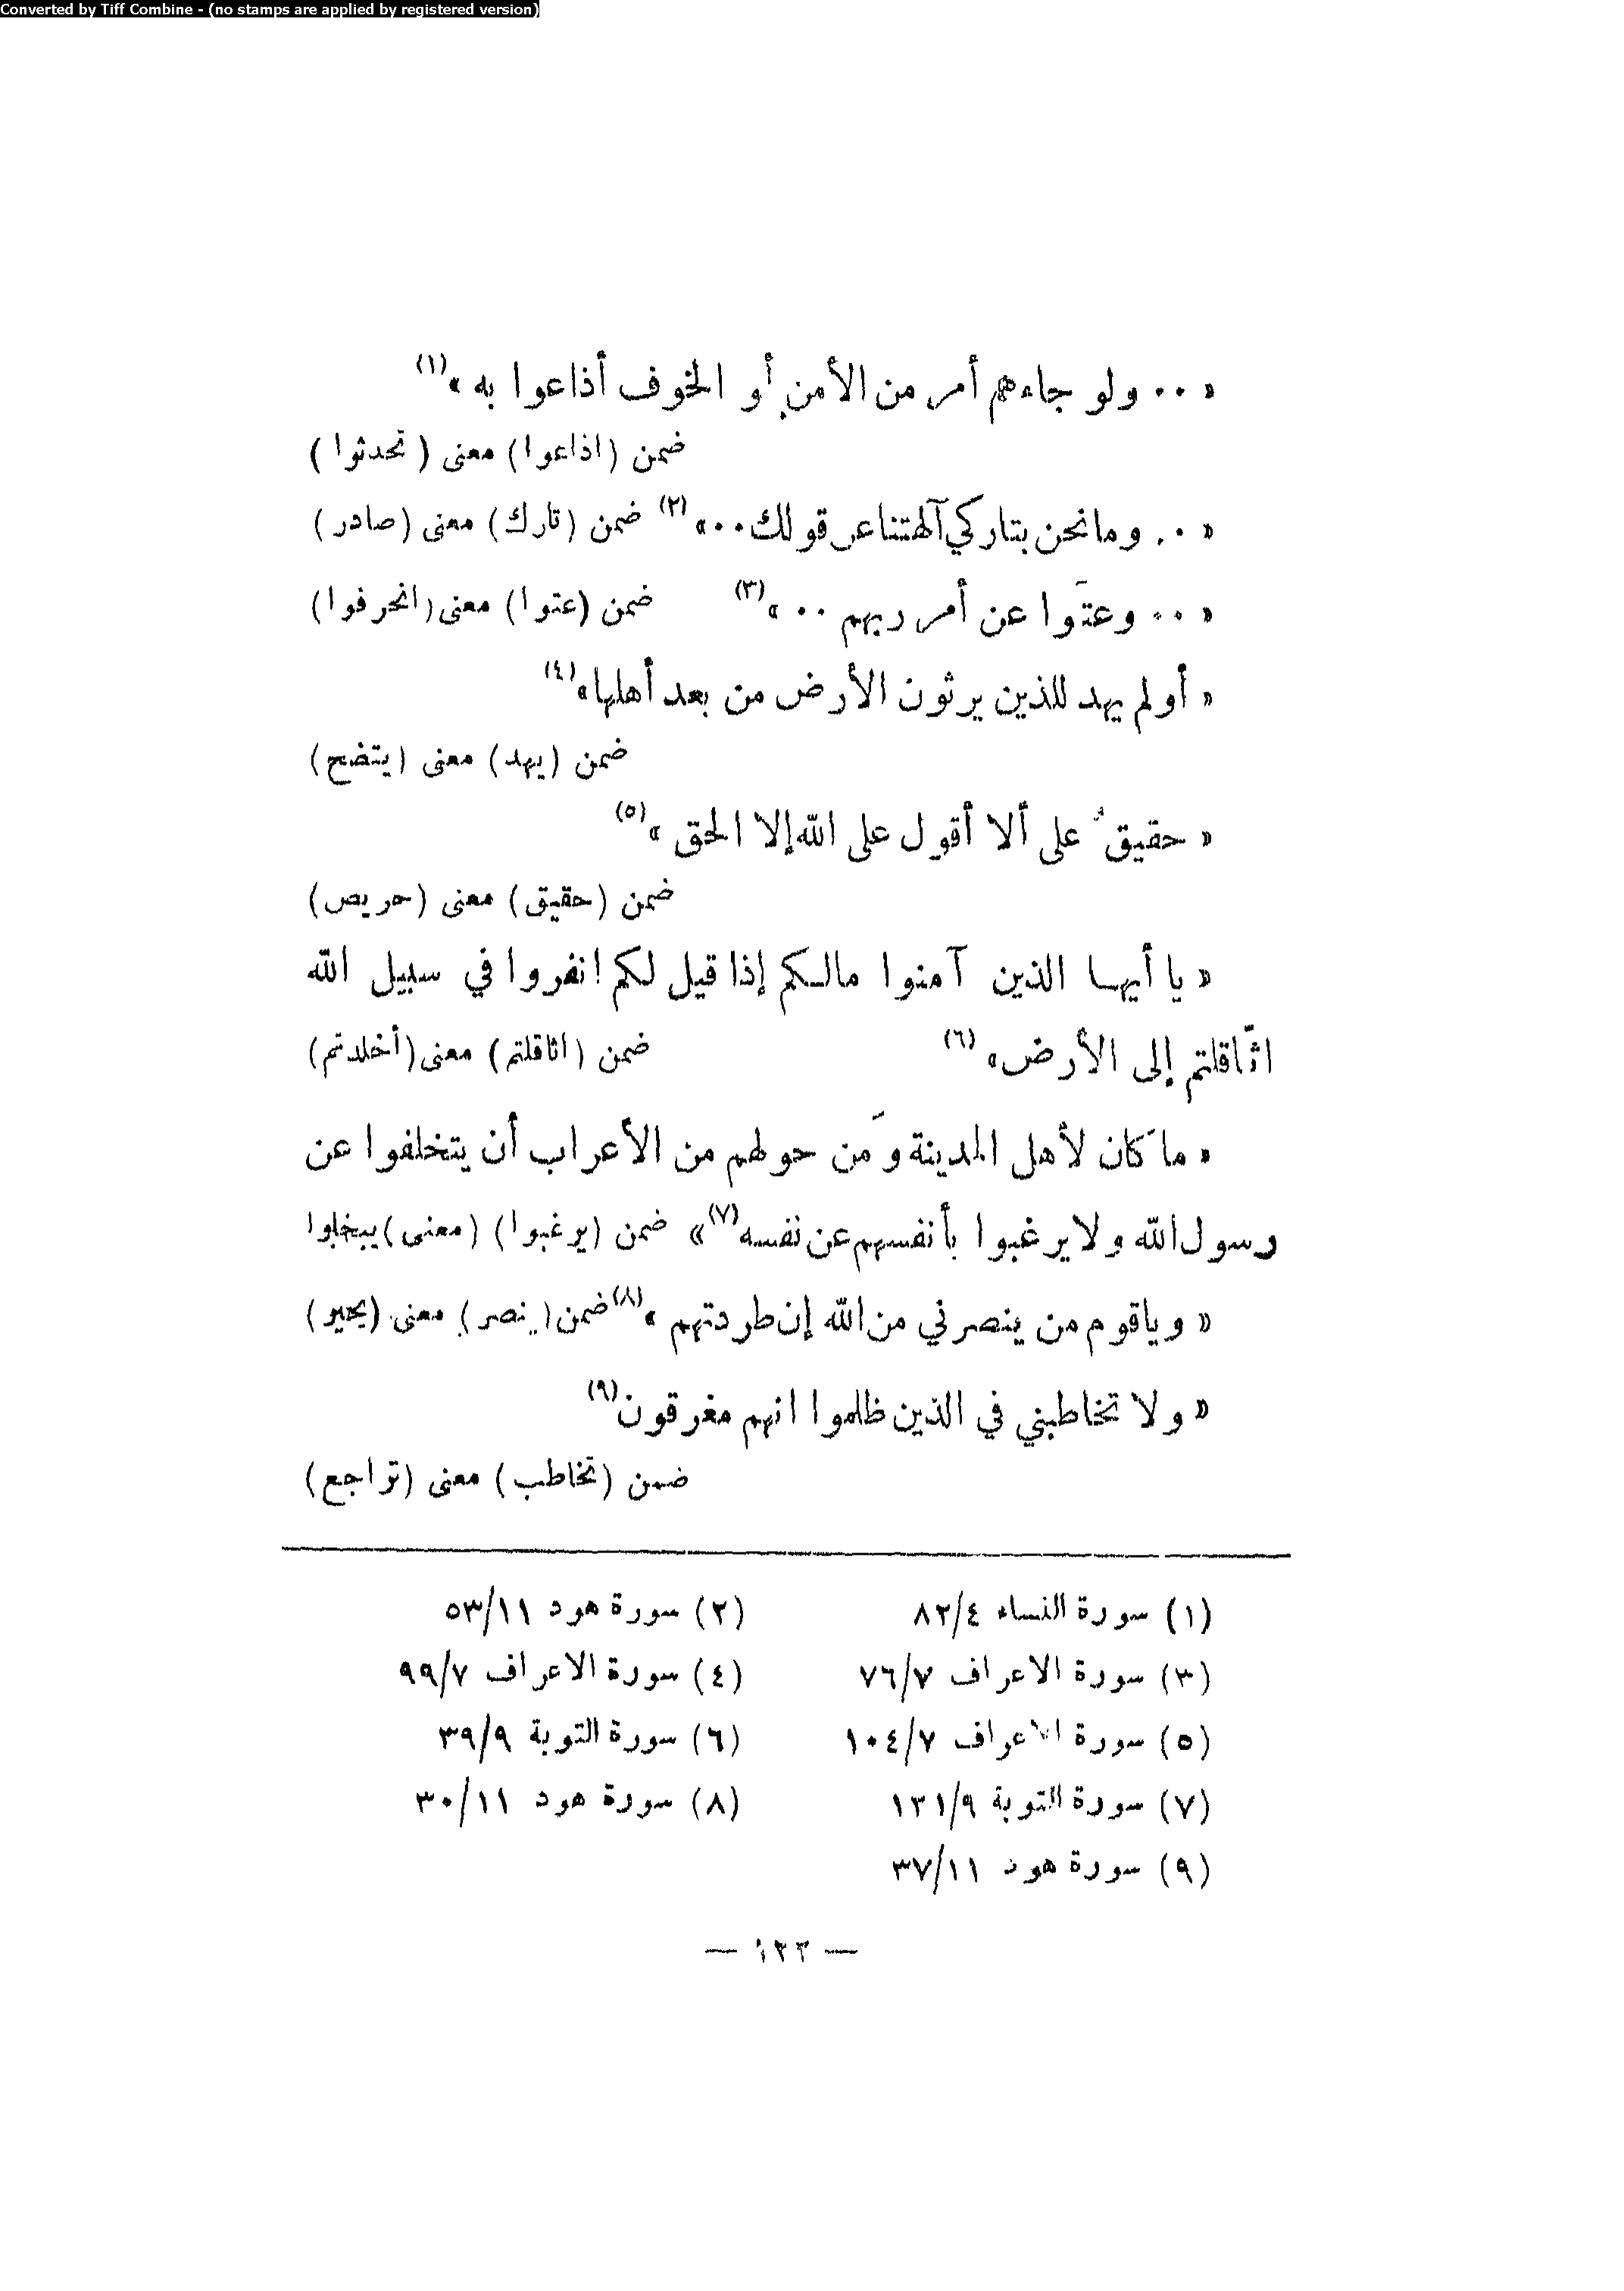 Converted by Tiff Combine - (no stamps are applied by registered version)
« ٠٠ ولو جاءهم أمر من الأمن أو الخوف أذاعوا به »(١)
ضمن (اذاعوا) معنى ( تحدثوا )
« ٠٠ وما نحن بتاركي آلهتنا عن قولك ٠٠»(٢) ضمن (تارك) معنى (صادر )
« ٠٠ وعتَوا عن أمر ربهم ٠٠ »(٣) ضمن (عتوا) معنى (انحرفوا )
« أولم يهد للذين يرثون الأرض من بعد أهلها»(٤)
ضمن (يهد) معنى (يتضح)
« حقيقٌ على ألا أقول على الله إلا الحق »(٥)
ضمن (حقيق) معنى (حريص)
« يا أيها الذين آمنوا مالكم إذا قيل لكم انفروا في سبيل الله
اثّاقلتم إلى الأرض» (٦) ضمن (اثاقلتم) معنى (أخلدتم)
« ما كان لأهل المدينة ومَن حولهم من الأعراب أن يتخلفوا عن
رسول الله ولا يرغبوا بأنفسهم عن نفسه(٧)» ضمن (يرغبوا) (معنى) يبخلوا
« وياقوم من ينصرني من الله إن طردتهم »(٨) ضمن (ينصر) معنى (يجير)
« ولا تخاطبني في الذين ظلموا انهم مغرقون(٩)
ضمن (تخاطب) معنى (تراجع)
(١) سورة النساء ٨٢/٤ (٢) سورة هود ٥٣/١١
(٣) سورة الاعراف ٧٦/٧ (٤) سورة الاعراف ٩٩/٧
(٥) سورة الاعراف ١٠٤/٧ (٦) سورة التوبة ٣٩/٩
(٧) سورة التوبة ١٢١/٩ (٨) سورة هود ٣٠/١١
(٩) سورة هود ٣٧/١١